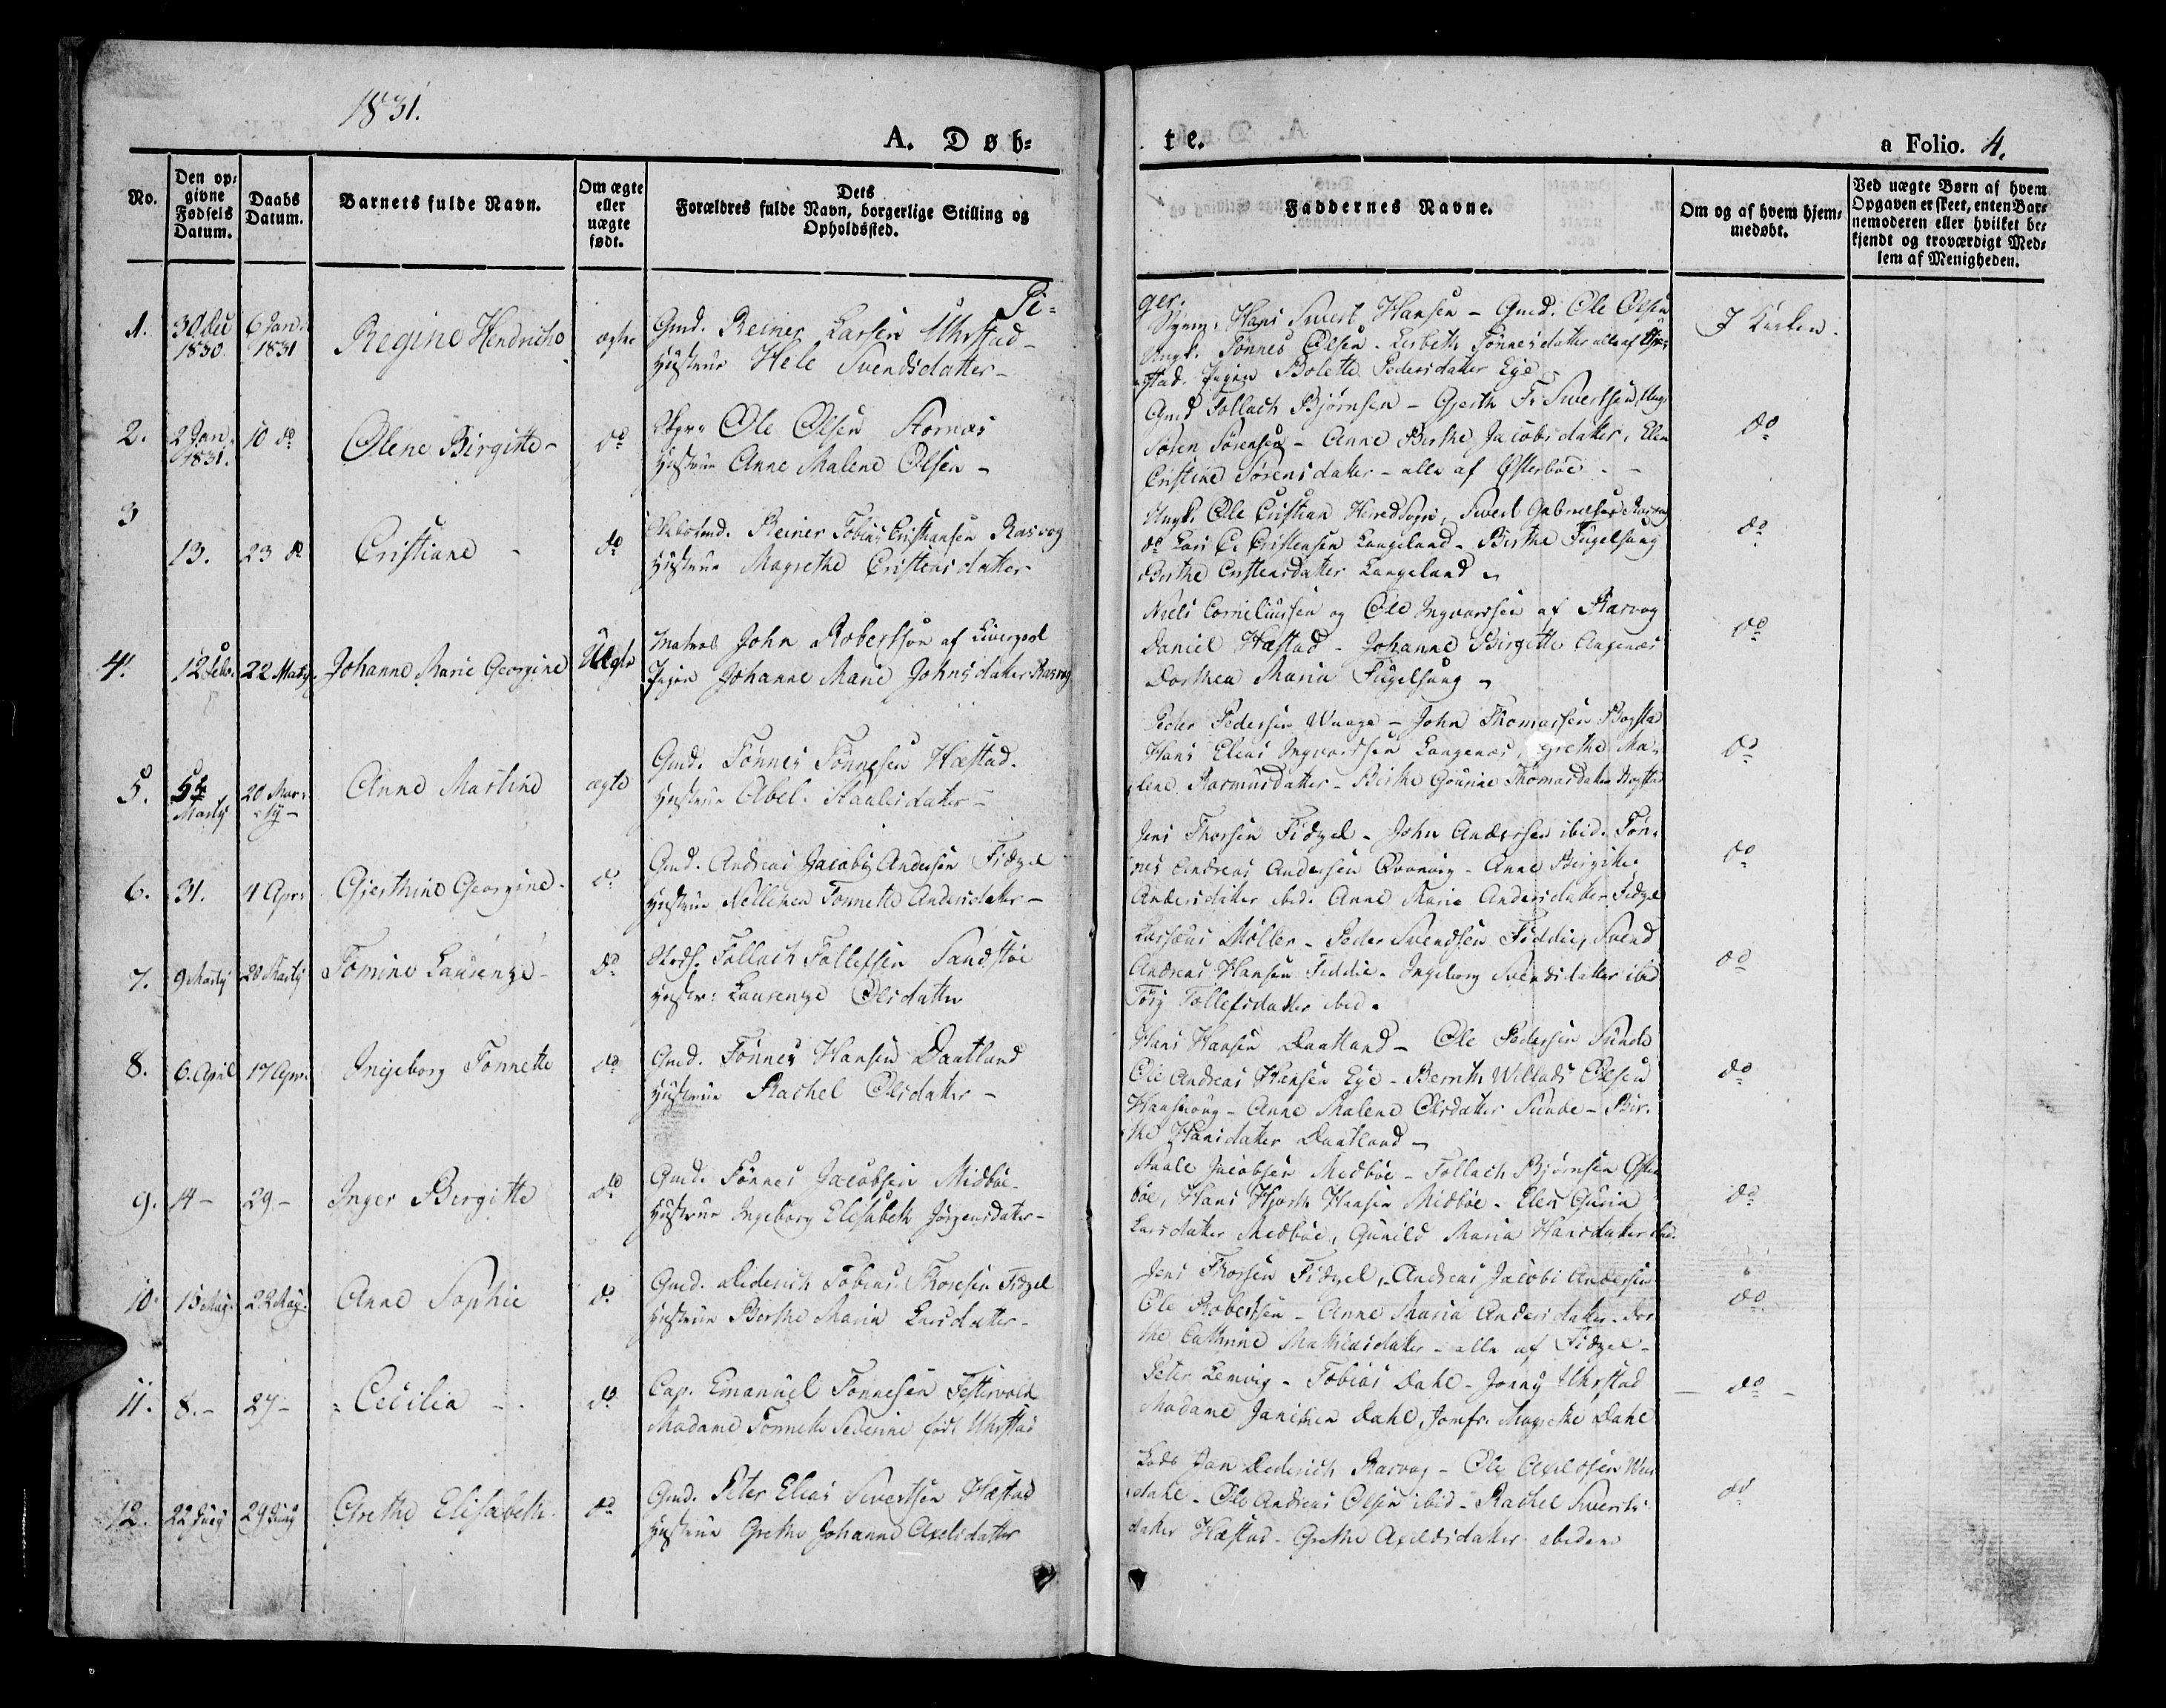 1831.
A. Døb=
te.
a Folio. 4.
No.
Den op=
givne
Fødsels
Datum.
Daabs
Datum.
Barnets fulde Navn.
Om ægte
eller
uægte
født.
Dets
Forældres fulde Navn, borgerlige Stilling og
Opholdssted.
Faddernes Navne.
Om og af hvem hjem=
medøbt.
Ved uægte Børn af hvem
Opgaven er skeet, enten Bar=
nemoderen eller hvilket be=
kjendt og troværdigt Med=
lem af Menigheden.
Pi=
ger.
1.
30 Dec
1830.
6 Jan.
1831
Regine Hendricke
ægte
Gmd. Reiner Larsen Uhrstad -
Hustrue Hele Svendsdatter -
Hans Sivert Hansen - Gmd. Ole Olsen
Ungk. Tønnes Olsen - Lisbeth Tønnesdatter alle af
stad. Pigen Bolette Pedersdatter Ege
I Kirken.
2.
2 Jan.
1831.
10 do
Olene Birgitte -
do
Ole Olsen Stornæs
Hustrue Anne Malene Olsen -
Gmd Tollach Bjørnsen - Gjerth Fr. Sivertsen, Ungk
Søren Sørensen - Anne Birthe Jacobsdatter, Elen
Cristine Sørensdatter - alle af Østerbøe -
do
3
13.
23 do
Cristiane -
do
Reiner Tobias Cristiansen Rasvog
Hustrue Magrethe Cristensdatter
Ungk. Ole Cristian Heredsogn, Sivert Gabrielsen Rasvog
do Lars C. Cristensen Langeland - Birthe Fugelsang
Birthe Cristensdatter Langeland
do
4.
12 Febr.
22 Martj.
Johanne Marie Georgine
Uægte
Matros John Robertson af Liverpool
Pigen Johanne Marie Johnsdatter Rasvog
Niels Corneliussen og Ole Ingvartsen af Rasvog
Daniel Hæstad - Johanne Birgitte Angenæs
Dorthea Maria Fugelsang
do
5.
5te
Martj
20 Mar=
tj -
Anne Martine
ægte
Gmd. Tønnes Tønnesen Hæstad.
Hustrue Abel Staalesdatter -
Peder Pedersen Waage - John Thomassen Bogstad
Hans Elias Ingvartsen Langenæs, Grethe Ma=
lene Rasmusdatter - Birthe Gurine Thomasdatter Bogstad
do
6.
31.
4 Apr.
Gjerthine Georgine -
do
Gmd. Andreas Jacobi Andersen Fidzel
Hustrue Nellicken Tonnette Andersdatter -
Jens Thorsen Fidzel - John Andersen ibid. Tøn=
nes Andreas Andersen - Anne Birgitte
Andersdatter ibid. Anne Marie Andersdatter Fidzel
do
7.
9 Martj
20 Martj
Tomine Laurenze -
do
Tollach Tollefsen Sandstøe
Hustr: Laurenze Olsdatter
Møller - Peder Svendsen Feddie, Svend
Andreas Hansen Feddie - Ingeborg Svendsdatter ibid
Tollefsdatter ibid.
do
8.
6. April
17 Apr.
Ingeborg Tonnette
do
Gmd. Tønnes Hansen Daatland
Hustrue Rachel Olsdatter -
Hans Hansen Daatland - Ole Pedersen Sunde
Ole Andreas Hansen Ege - Bernth Willads Olsen
Anne Malene Olsdatter Sunde - Bir=
the Hansdatter Daatland
do
9.
14 -
29. -
Inger Birgitte
do
Gmd. Tønnes Jacobsen Midbøe -
Hustrue Ingeborg Elisabeth Jørgensdatter -
Staale Jacobsen Medbøe - Tollach Bjørnsen Øster
bøe, Hans Hjorth Hansen Midbøe - Elen Guria
Larsdatter Medbøe, Gunild Maria Hansdatter ibid.
do
10.
15 May.
22 May.
Anne Sophie
do
Gmd. Diderich Tobias Thorsen Fidzel
Hustrue Berthe Maria Larsdatter -
Jens Thorsen Fidzel, Andreas Jacobi Andersen
Ole Robertsen - Anne Maria Andersdatter - Dor
the Cathrine Mathiasdatter - alle af Fidzel -
do
11.
8. -
27 -
Cecilia -
do
Cap. Emanuel Tønnesen Festervold
Madame Tonnette Severine født Uhrstad
Peter Lemvig - Tobias Dahl - Jonny Uhrstad
Madame Janichen Dahl, Jomfr. Magrethe Dahl
- do -
12.
22 Juny
29 Juny
Grethe Elisabeth
do
Gmd. Peter Elias Sivertsen Hæstad
Hustrue Grethe Johanne Axelsdatter
Lods Jan Diderich Rasvog - Ole Axelsen Wei
dahl - Ole Andreas Olsen ibid - Rachel Siverts
datter Hæstad - Grethe Axelsdatter ibidem
do